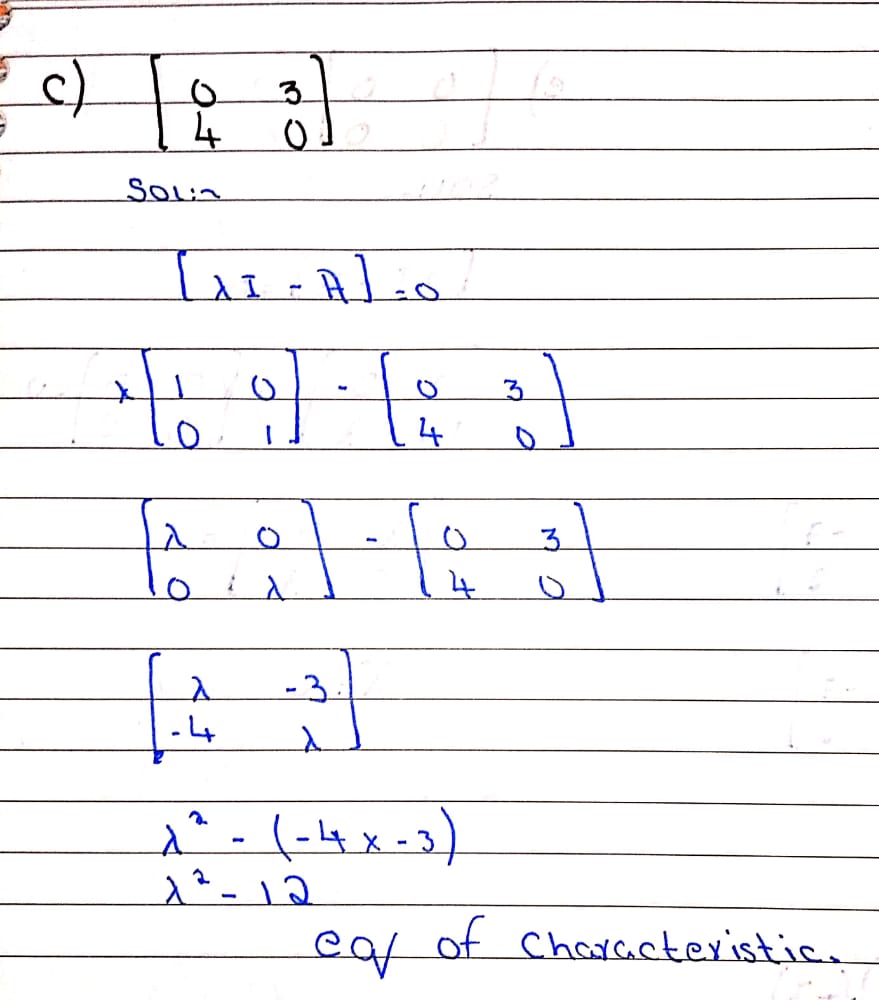 c) [ 0 3
4 0 ]
Sol:n
[ λI - A ] = 0
λ [ 1 0
0 1 ] - [ 0 3
4 0 ]
[ λ 0
0 λ ] - [ 0 3
4 0 ]
[ λ -3
-4 λ ]
λ² - (-4 x -3)
λ² - 12
eq of characteristic.